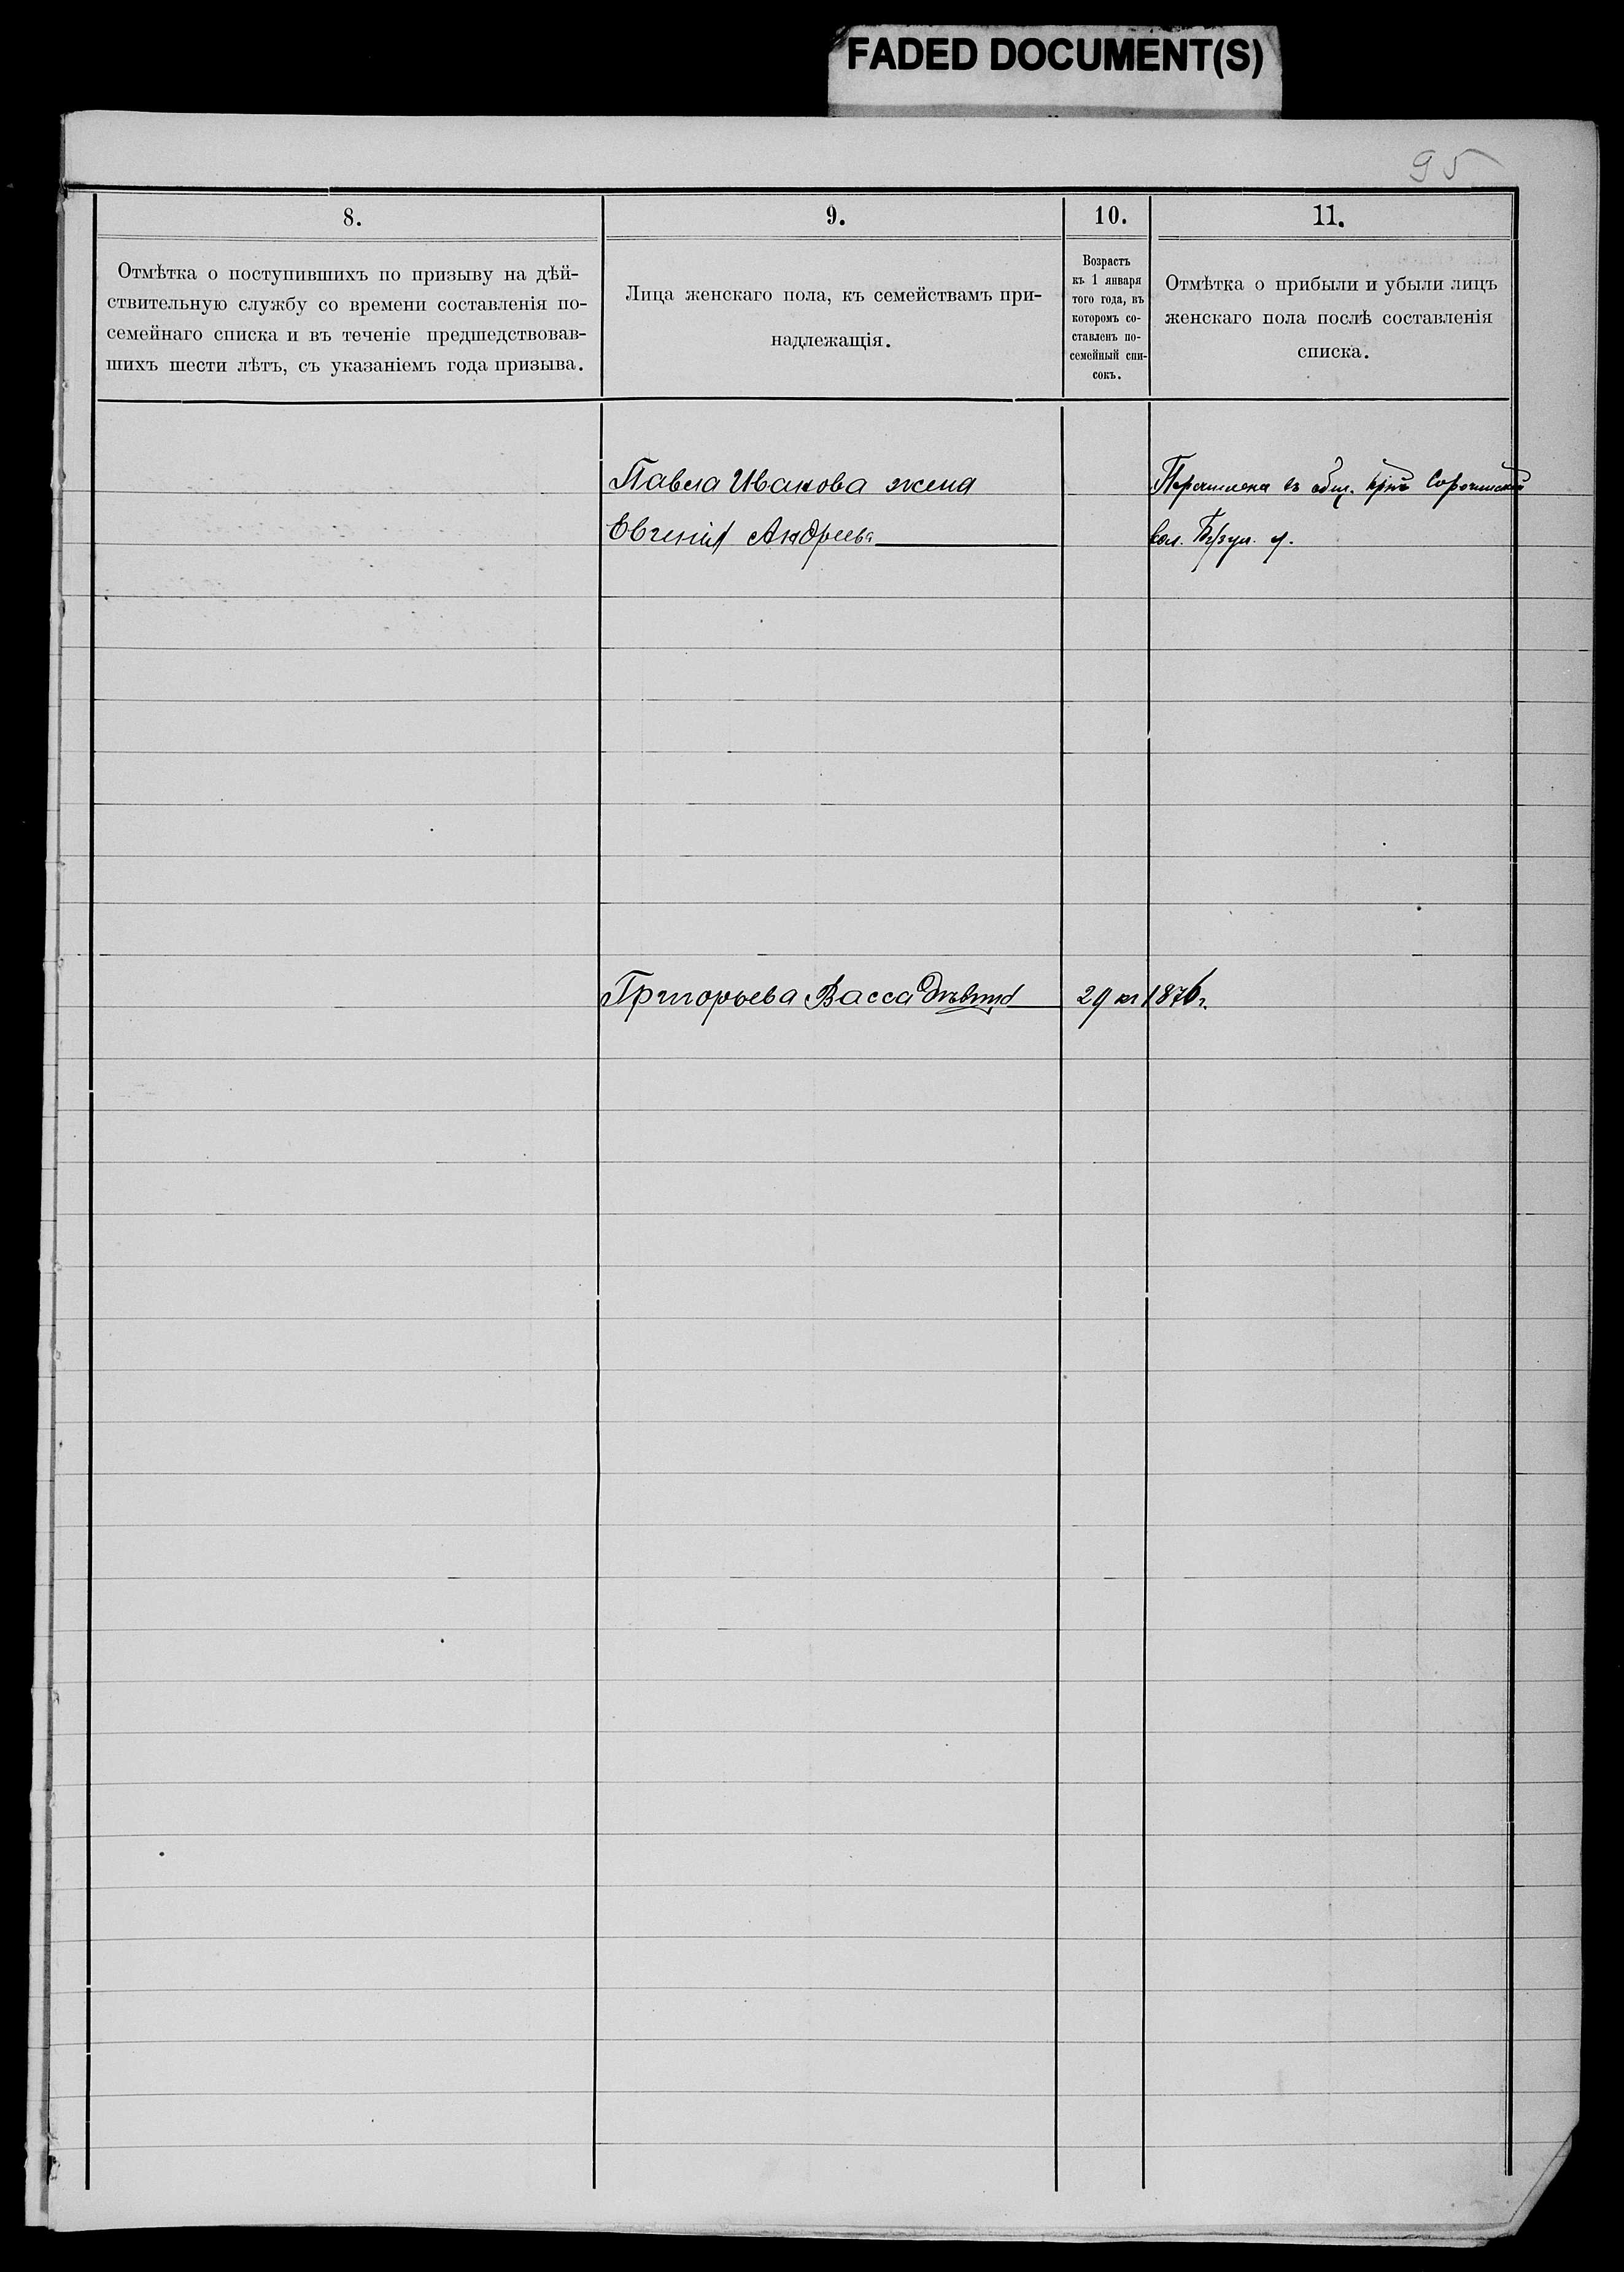 FADED DOCUMENT(S)
95
8.
Отмѣтка о поступившихъ по призыву на дѣй-
ствительную службу со времени составленія по-
семейнаго списка и въ теченіе предшедствовав-
шихъ шести лѣтъ, съ указаніемъ года призыва.
9.
Лица женскаго пола, къ семействамъ при-
надлежащія.
10.
Возрастъ
къ 1 января
того года, въ
которомъ со-
ставленъ по-
семейный спи-
сокъ.
11.
Отмѣтка о прибыли и убыли лицъ
женскаго пола послѣ составленія
списка.
Павла Иванова жена
Евгенія Андреева
Перечислена въ общ. Сорочинской
вол. Бузул. у.
Григорьева Васса Дѣвица 29 1876г.